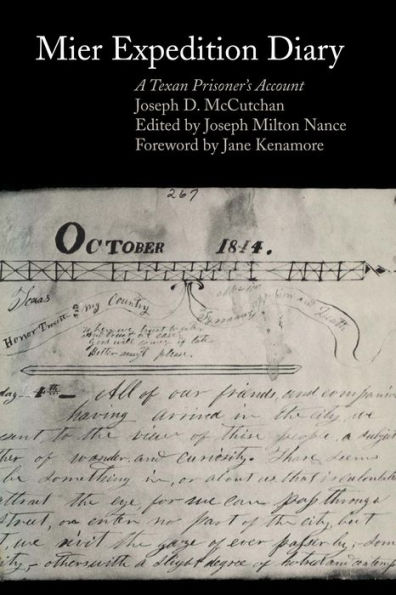 Mier Expedition Diary
A Texan Prisoner's Account
Joseph D. McCutchan
Edited by Joseph Milton Nance
Foreword by Jane Kenamore
267
OCTOBER 1844.
Texas
Honor Trust & my Country
and Death
God will
Better must please.
day 4th All of our friends, and companions
having arrived in the city, we
to the view of these people, a subject
of wonder and curiosity. There seems
be something in, or about us that is calculated
attract the eye, for we can pass through
street, or enter no part of the city, but
we meet the gaze of ever passer by,
others with a slight degree of hatred and